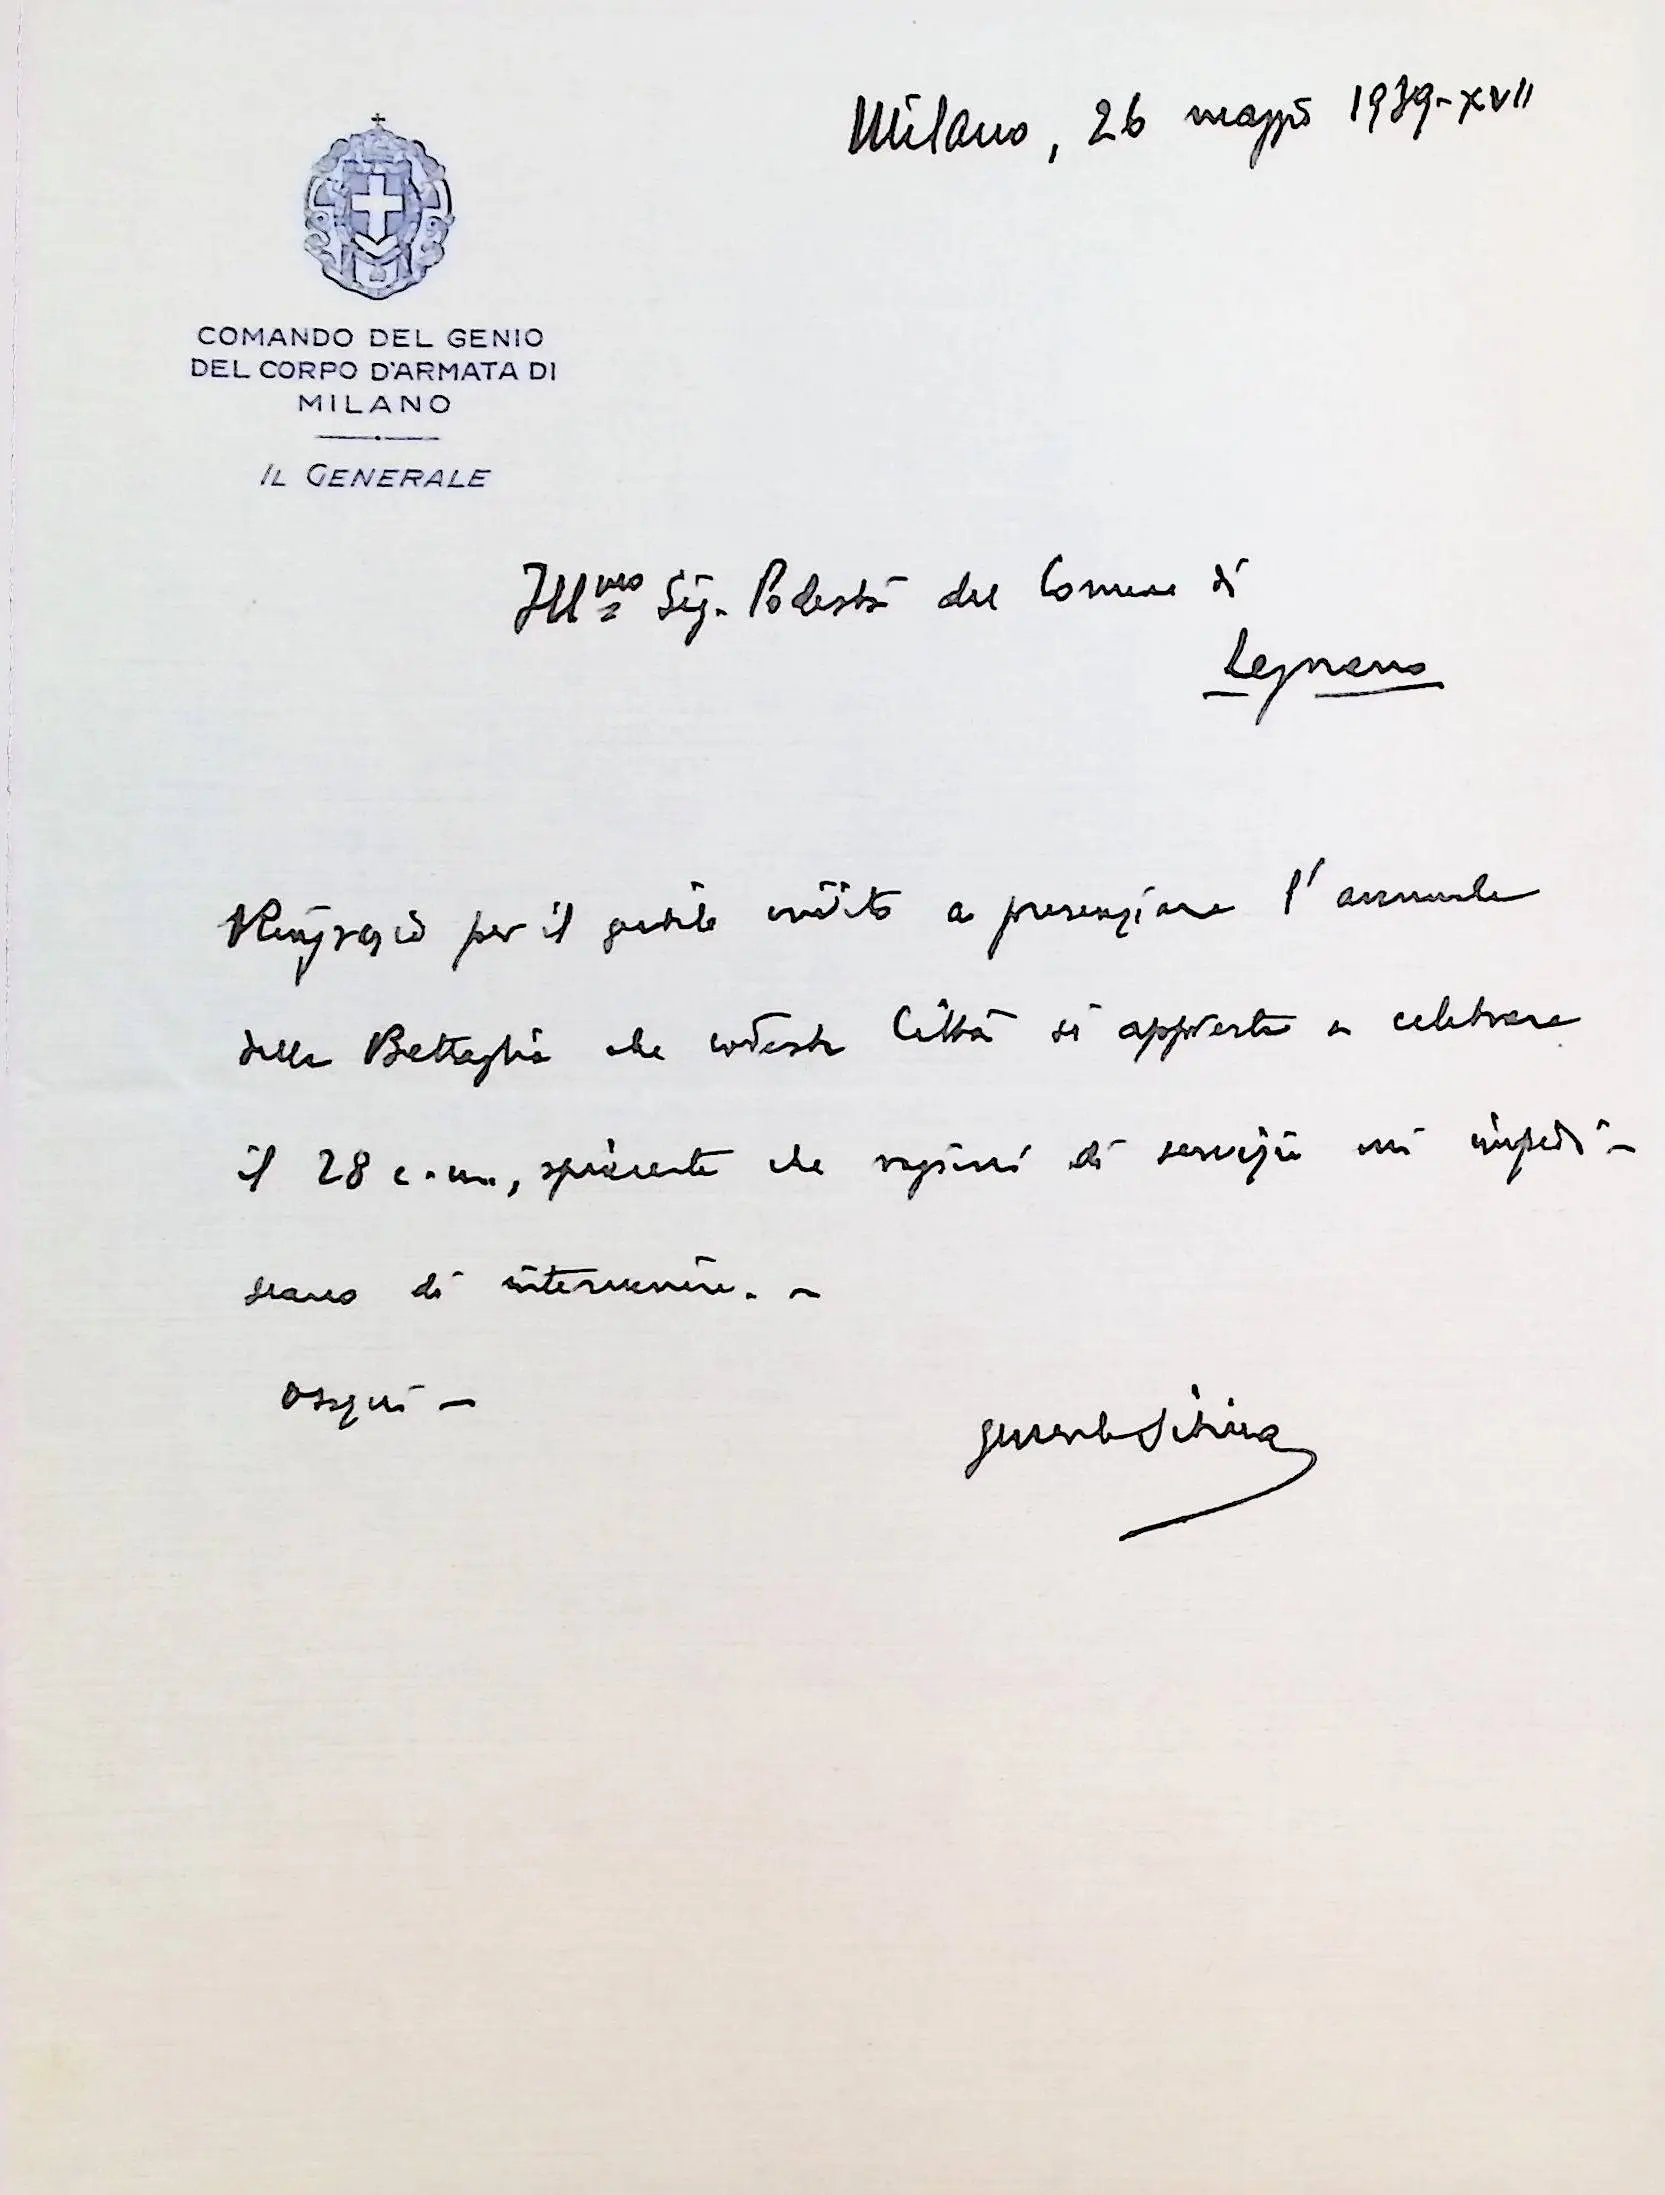 Milano, 26 maggio 1939-XVII
COMANDO DEL GENIO
DEL CORPO D'ARMATA DI
MILANO
IL GENERALE
Ill.mo Sig. Podestà del Comune di
Legnano
Ringrazio per il gentile invito a presenziare l'annuale
della Battaglia che codesta Città si appresta a celebrare
il 28 c.m., spiacente che ragioni di servizio mi impedi-
scano di intervenire. -
Ossequi -